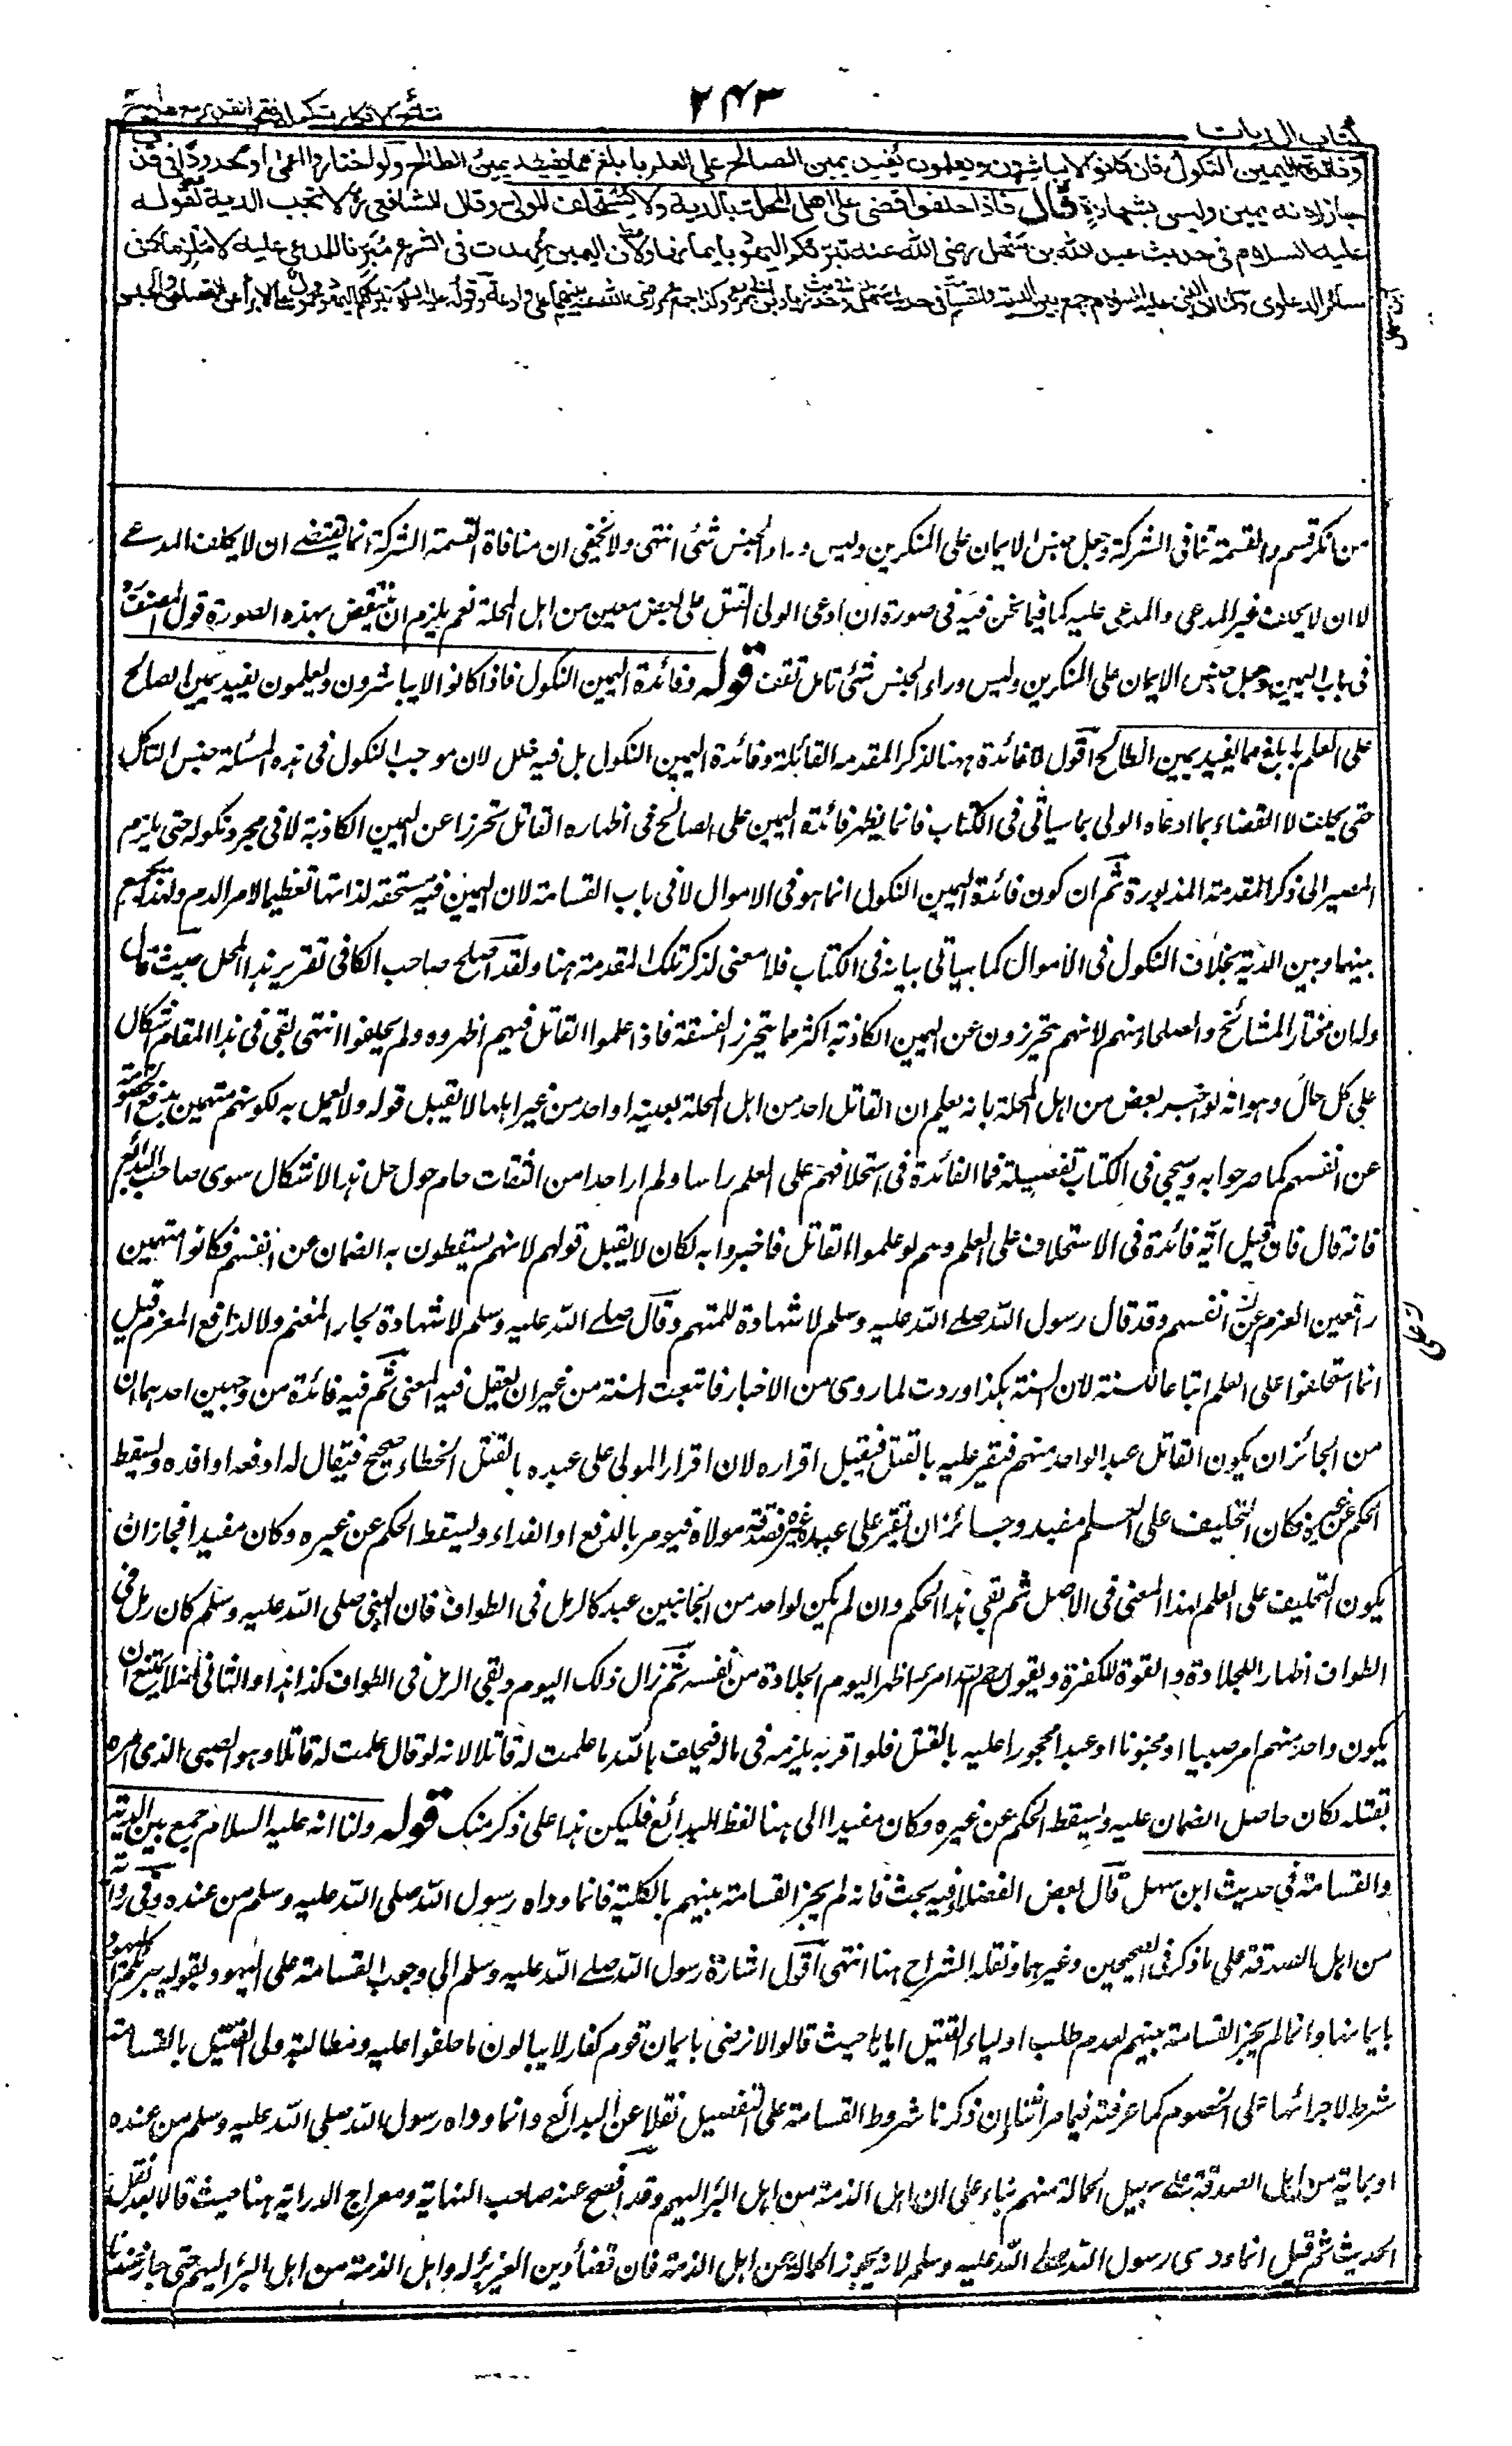 ٢٤٣
كتاب الديات
نتائج الافكار تكملة فتح القدير مع هداية
وفائدة اليمين النكول فان كانوا لا يباشرون ويعلمون يفيد يمين الصالح على العلم بابلغ مما يفيد يمين الطالح ولو اختاروا اعمى او محدودا فى قذف
جاز لانه يمين وليس بشهادة قال فاذا حلفوا قضى على اهل المحلة بالدية ولا يستحلف الولى وقال الشافعى لا تجب الدية لقوله
عليه السلام فى حديث عبد الله بن سهل رضى الله عنه تبرئكم اليهود بايمانها ولان اليمين عهدت فى الشرع مبرئا للمدعى عليه لا ملزما كما فى
سائر الدعاوى ولنا ان النبى عليه السلام جمع بين الدية والقسامة فى حديث ابن سهل وفى حديث زياد بن ابى مريم وكذا جمع عمر رضى الله عنه بينهما على وادعة وقوله عليه السلام تبرئكم اليهود محمول على الابراء عن القصاص والحبس
من انكر قسم والقسمة تنافى الشركة وجعل جنس الايمان على المنكرين وليس وراء الجنس شئ انتهى ولا يخفى ان منافاة القسمة الشركة انما يقتضى ان لا يحلف المدعى
لا ان لا يحلف غير المدعى والمدعى عليه كما فيما نحن فيه فى صورة ان ادعى الولى القتل على بعض معين من اهل المحلة نعم يلزم ان ينتقض بهذه الصورة قول المصنف
فى باب اليمين وجعل جنس الايمان على المنكرين وليس وراء الجنس شئ تامل تقف قوله وفائدة اليمين النكول فاذا كانوا لا يباشرون ويعلمون يفيد يمين الصالح
على العلم بابلغ مما يفيد يمين الطالح اقول لا فائدة ههنا لذكر المقدمة القائلة وفائدة اليمين النكول بل فيه خلل لان موجب النكول فى هذه المسئلة حبس الناكل
حتى يحلف لا القضاء بما ادعاه الولى بما سياتى فى الكتاب فانما يظهر فائدة اليمين على الصالح فى اظهاره القاتل تحرزا عن اليمين الكاذبة لا فى مجرد نكوله حتى يلزم
المصير الى ذكر المقدمة المذبورة ثم ان كون فائدة اليمين النكول انما هو فى الاموال لا فى باب القسامة لان اليمين فيه مستحقة لذاتها تعظيما لامر الدم ولهذا يجمع
بينها وبين الدية بخلاف النكول فى الاموال كما سياتى بيانه فى الكتاب فلا معنى لذكر تلك المقدمة ههنا ولقد اصلح صاحب الكافى تقرير هذا المحل حيث قال
وله ان يختار المشائخ والصلحاء منهم لانهم يتحرزون عن اليمين الكاذبة اكثر مما يتحرز الفسقة فاذا علموا القاتل فيهم اظهروه ولم يحلفوا انتهى بقى فى هذا المقام اشكال
على كل حال وهو انه لو اخبر بعض من اهل المحلة بانه يعلم ان القاتل احد من اهل المحلة بعينه او احد من غير اهلها لا يقبل قوله ولا يعمل به لكونهم متهمين بدفع الخصومة
عن انفسهم كما صرحوا به وسيجئ فى الكتاب تفصيله فما الفائدة فى استحلافهم على العلم راسا ولم ار احدا من الثقات حام حول حل هذا الاشكال سوى صاحب البدائع
فانه قال فان قيل اية فائدة فى الاستحلاف على العلم وهم لو علموا القاتل فاخبروا به لكان لا يقبل قولهم لانهم يسقطون به الضمان عن انفسهم فكانوا متهمين
دافعين الغرم عن انفسهم وقد قال رسول الله صلى الله عليه وسلم لا شهادة للمتهم وقال صلى الله عليه وسلم لا شهادة لجار المغنم ولا لدافع المغرم قيل
انما استحلفوا على العلم اتباعا للسنة لان السنة هكذا وردت لما روى من الاخبار فاتبعت السنة من غير ان يعقل فيه المعنى ثم فيه فائدة من وجهين احدهما ان
من الجائز ان يكون القاتل عبدا لواحد منهم فيقر عليه بالقتل فيقبل اقراره لان اقرار المولى على عبده بالقتل الخطاء صحيح فيقال له ادفعه او افده ويسقط
الحكم عن غيره فكان التحليف على العلم مفيدا وجائز ان يقر على عبد غيره فصدقه مولاه فيومر بالدفع او الفداء ويسقط الحكم عن غيره وكان مفيدا فجاز ان
يكون التحليف على العلم لهذا المعنى فى الاصل ثم بقى هذا الحكم وان لم يكن لواحد من الجانبين عبد كالرمل فى الطواف فان النبى صلى الله عليه وسلم كان رمل فى
الطواف اظهارا للجلادة والقوة للكفرة ويقول رحم الله امرءا اظهر اليوم الجلادة من نفسه ثم زال ذلك اليوم وبقى الرمل فى الطواف كذا هذا والثانى انه لا يمتنع ان
يكون واحد منهم امر صبيا او مجنونا او عبدا محجورا عليه بالقتل فلو اقر به يلزمه فى ماله فيحلف بالله ما علمت له قاتلا لانه لو قال علمت له قاتلا وهو الصبى الذى امره
بقتله لكان حاصل الضمان عليه ويسقط الحكم عن غيره وكان مفيدا الى هنا لفظ البدائع فليكن هذا على ذكر منك قوله ولنا انه عليه السلام جمع بين الدية
والقسامة فى حديث ابن سهل قال بعض الفضلاء فيه بحث فانه لم يجز القسامة بينهم بالكلية فانما وداه رسول الله صلى الله عليه وسلم من عنده وفى رواية
من ابل الصدقة على ما ذكر فى الصحيحين وغيرهما ونقله الشراح هنا انتهى اقول اشارة رسول الله صلى الله عليه وسلم الى وجوب القسامة على اليهود بقوله تبرئكم اليهود
بايمانها وانما لم يجز القسامة بينهم لعدم طلب اولياء القتيل اياها حيث قالوا لا نرضى بايمان قوم كفار لا يبالون ما حلفوا عليه ومطالبة ولى القتيل بالقسامة
شرط لاجرائها على الخصوم كما عرفته فيما مر اثناء ان ذكرنا شروط القسامة على التفصيل نقلا عن البدائع وانما وداه رسول الله صلى الله عليه وسلم من عنده
او بمائة من ابل الصدقة على سبيل الحمالة منهم بناء على ان اهل الذمة من اهل البر اليهم وقد افصح عنه صاحب النهاية ومعراج الدراية ههنا حيث قالا بعد نقل
الحديث ثم قيل انما ودى رسول الله صلى الله عليه وسلم لانه يجوز الحمالة عن اهل الذمة فان قضاء دين الغير بر له واهل الذمة من اهل البر اليهم حتى جاز عندنا